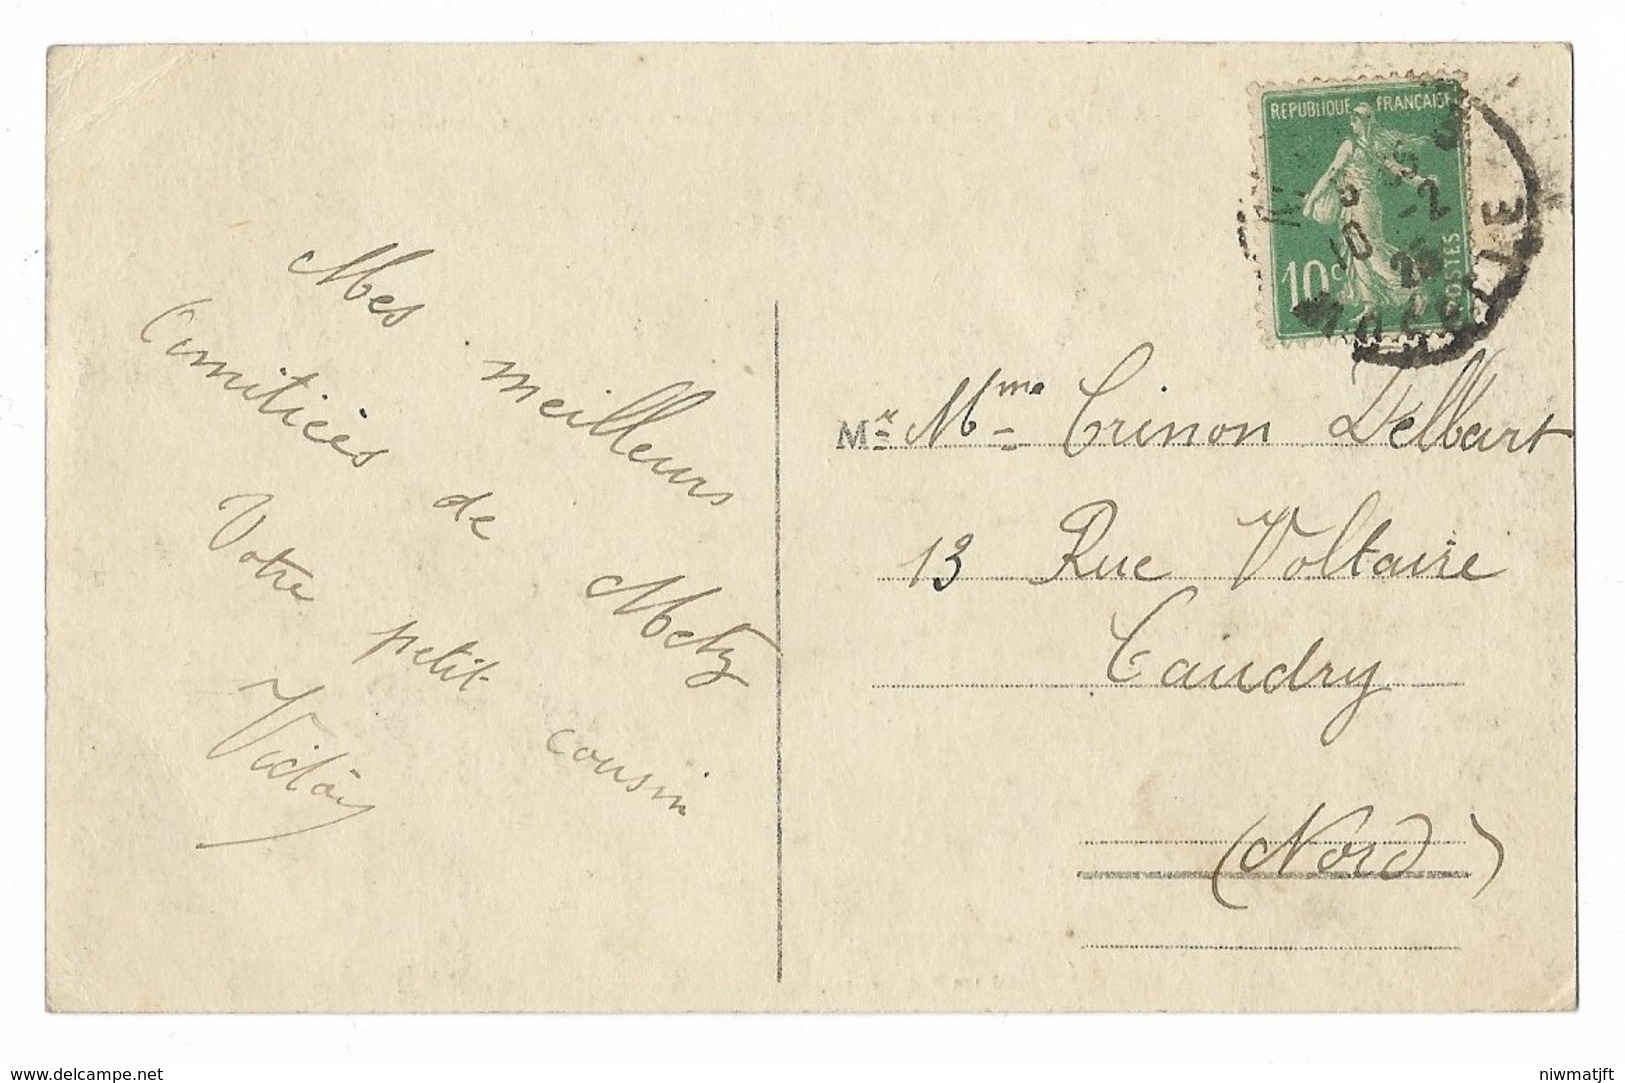 REPUBLIQUE FRANÇAISE
10c
POSTES
10 -2
MOSELLE
Mes meilleurs
Amitiées de Metz
Votre petit cousin
Victor
Mr Mme Crinon Delbart
13 Rue Voltaire
Caudry
(Nord)
www.delcampe.net
niwmatjft